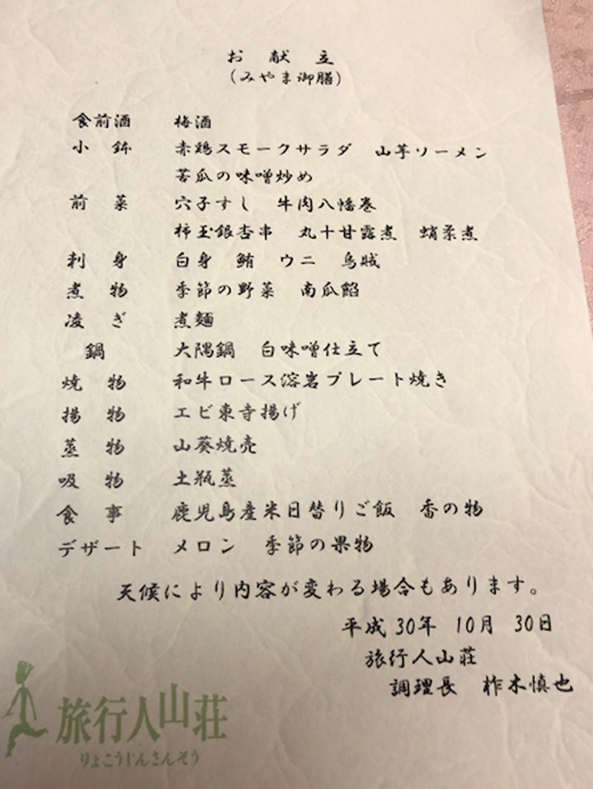 お献立
(みやま御膳)
食前酒 梅酒
小鉢 赤鶏スモークサラダ 山芋ソーメン
苦瓜の味噌炒め
前菜 穴子すし 牛肉八幡巻
柿玉銀杏串 丸十甘露煮 蛸柔煮
刺身 白身 鮪 ウニ 烏賊
煮物 季節の野菜 南瓜餡
凌ぎ 煮麺
鍋 大隅鍋 白味噌仕立て
焼物 和牛ロース溶岩プレート焼き
揚物 エビ東寺揚げ
蒸物 山葵焼売
吸物 土瓶蒸
食事 鹿児島産米日替りご飯 香の物
デザート メロン 季節の果物
天候により内容が変わる場合もあります。
平成30年 10月 30日
旅行人山荘
調理長 柞木慎也
旅行人山荘
りょこうじんさんそう